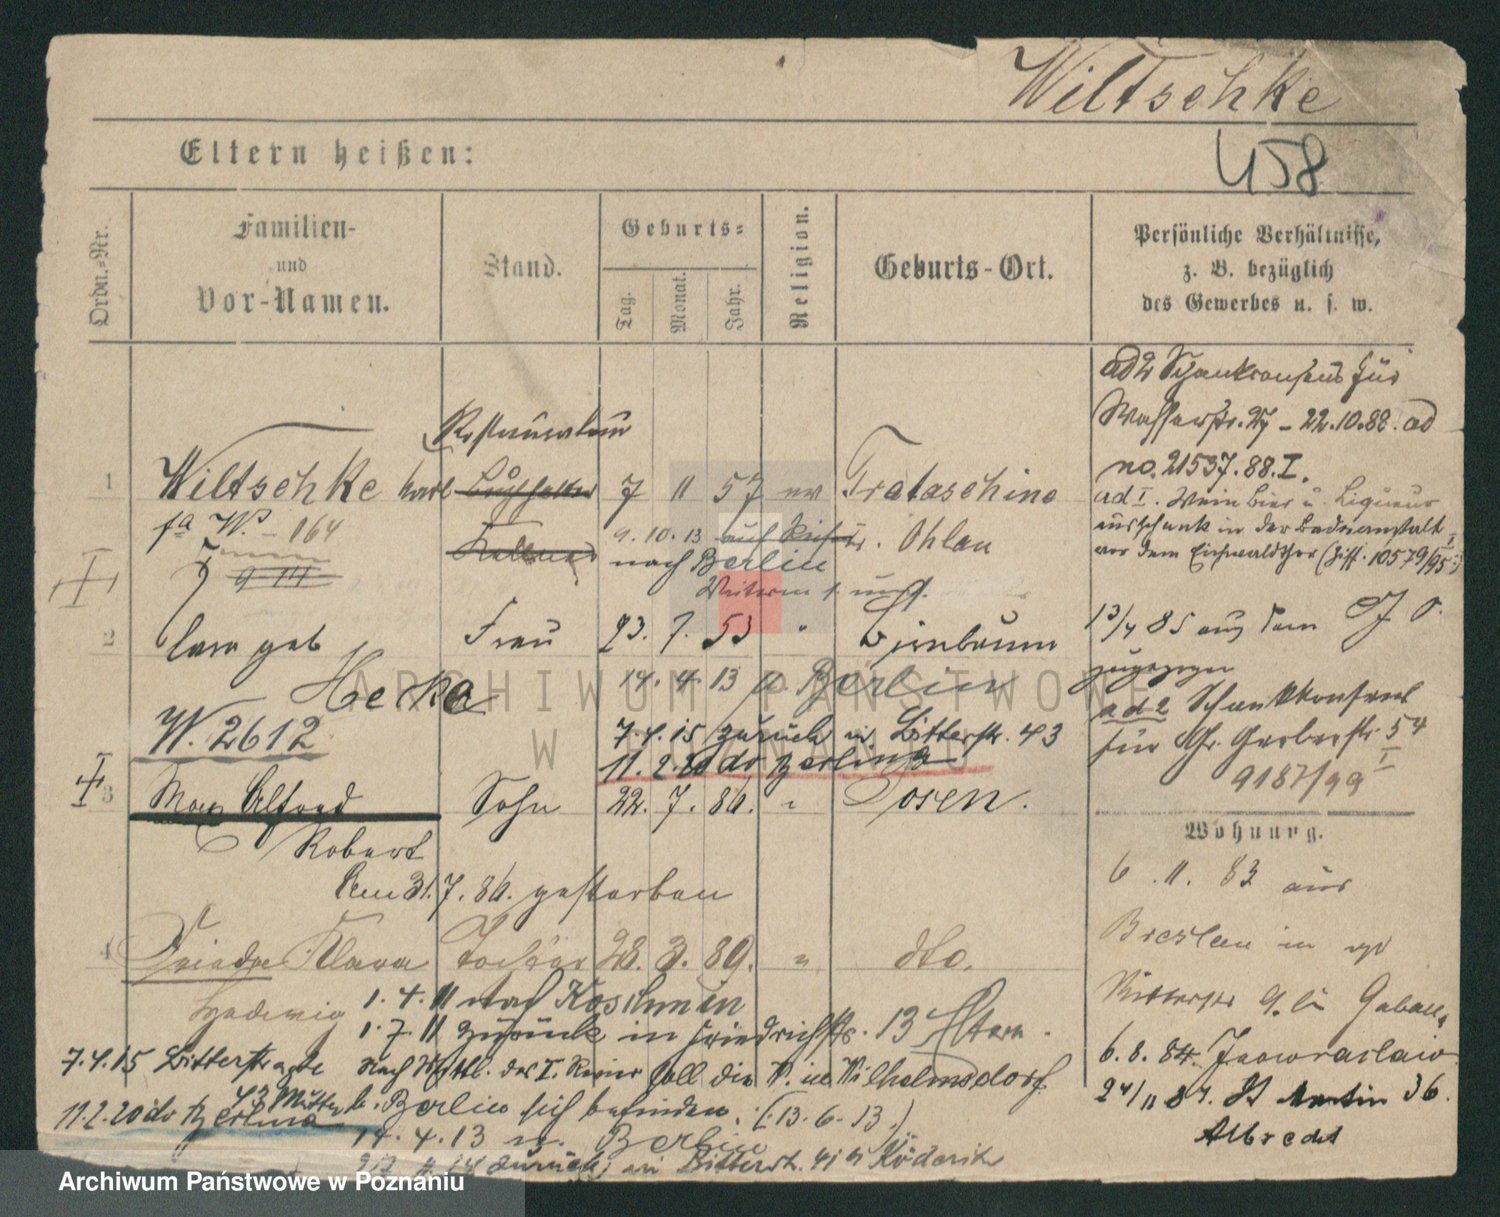 Wiltschke
458
Eltern heißen:
Ordn.-Nr.
Familien-
und
Vor-Namen.
Stand.
Geburts-
Tag.
Monat.
Jahr.
Religion.
Geburts-Ort.
Persönliche Verhältnisse,
z. B. bezüglich
des Gewerbes u. s. w.
ad 2 Schankconsens für
Wasserstr. 27 - 22.10.88. ad
no. 21537.88.I.
ad I. Wein Bier u. Liqueur
ausschank in der Badeanstalt
vor dem Eichwaldthor (Ziff. 10579/95
Restaurateur
1 Wiltschke Karl Buchhalter 7 11 57 ev Trataschine
W. - 164
Kellner
9.10.13 auf Reisen
nach Berlin
Kr. Ohlau
9 14
2 Clara geb Frau 23. 7. 53 " Birnbaum
Hecka
14. 4. 13 n Berlin
13/4 85 aus dem
zugezogen
W. 2612
7.4.15 zurück in Bitterstr. 43
11. 2. 20 do Berlin
ad 2 Schankkonsens
für Gr. Gerberstr. 54
9187/99 I
3 Max Alfred Sohn 22. 7. 86. " Posen.
Robert
Am 31.7.86. gestorben
Wohnung.
6. 11. 83 aus
Breslau in
Ritterstr 9.
4 Frieda Klara Tochter 28. 3. 89. " dto.
Hedwig
1. 4. 11 nach Koschmin
1. 7. 11 zurück in Friedrichstr. 13 Eltern.
6. 8. 84. Inowraclaw
7.4.15 Bitterstraße
43 Mutter
nach Mittl. des I. Revier soll die W. in Wilhelmsdorf
b. Berlin sich befinden. (13.6.13.)
24/11 87. St Martin 36.
Albrecht
11.2.20 do Berlin
14. 4. 13 n. Berlin
zurück, in Bitterstr. 41
ARCHIWUM PAŃSTWOWE
W POZNANIU
Archiwum Państwowe w Poznaniu